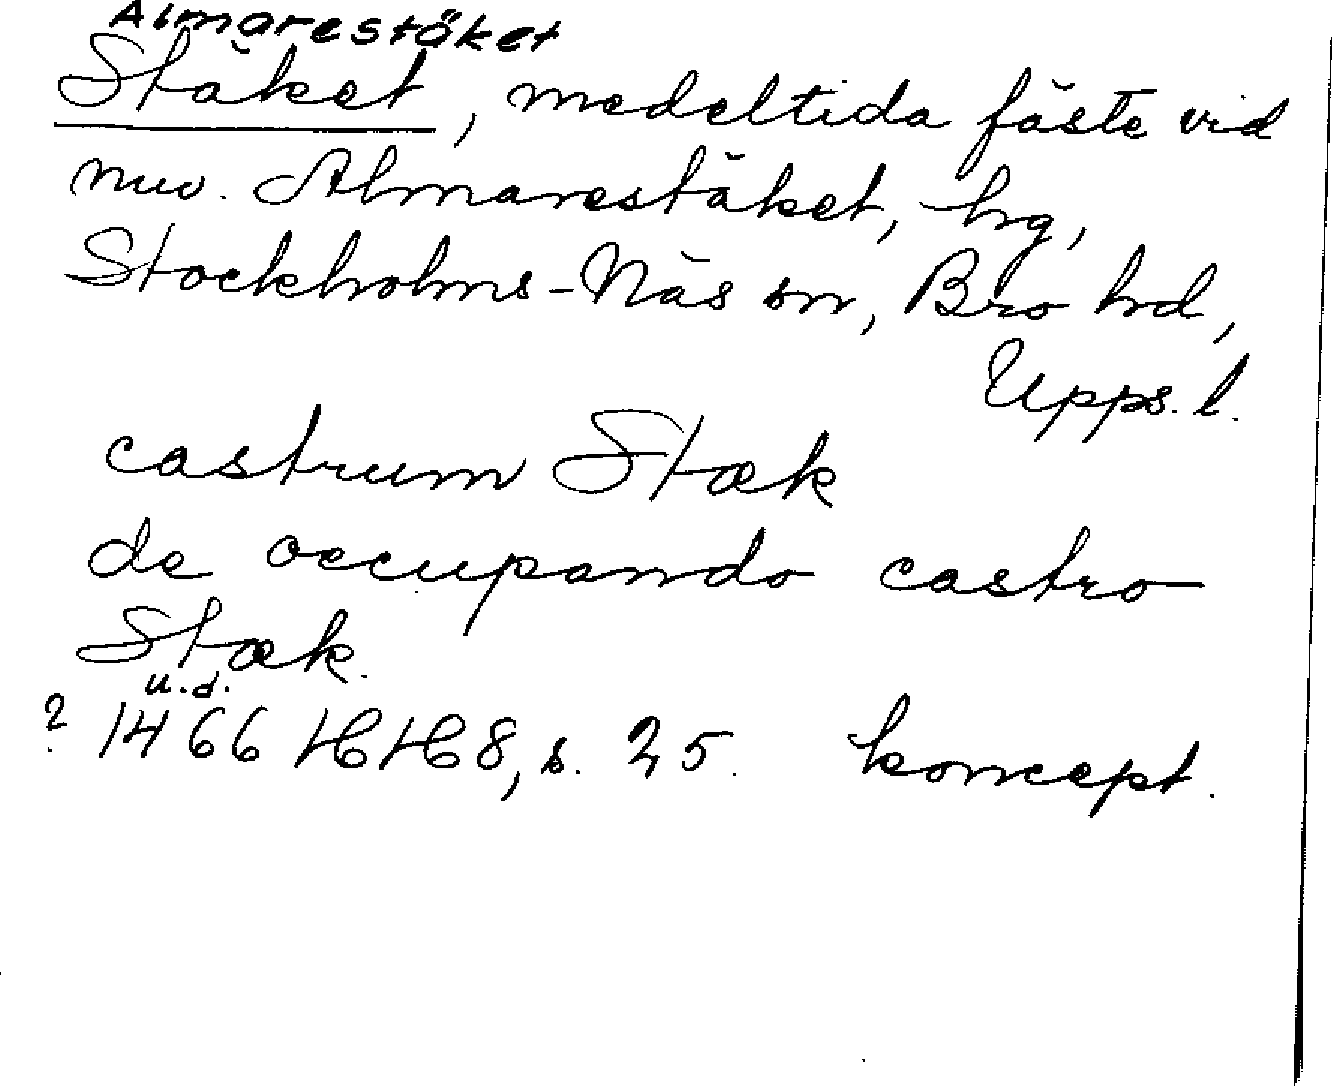 Almarestäket
Stäket, medeltida fäste vid
nuv. Almarestäket, hg,
Stockholms-Näs sn, Bro hd,
Upps. l.
castrum Stæk
de occupando castro
Stæk.
u.d.
? 1466 HH 8, s. 25. koncept.